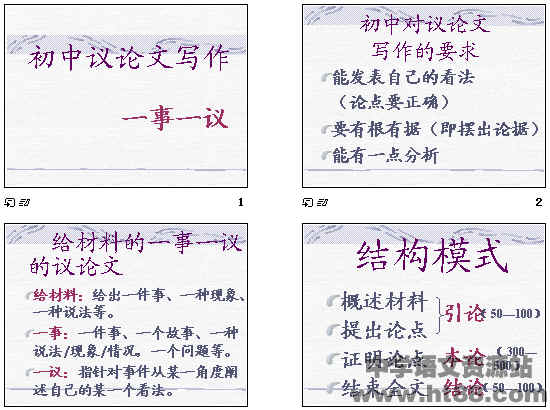 初中议论文写作
一事一议
1
初中对议论文
写作的要求
能发表自己的看法
（论点要正确）
要有根有据（即摆出论据）
能有一点分析
2
给材料的一事一议
的议论文
给材料：给出一件事、一种现象、
一种说法等。
一事：一件事、一个故事、一种
说法/现象/情况。一个问题等。
一议：指针对事件从某一角度阐
述自己的某一个看法。
结构模式
概述材料
提出论点
引论（50—100）
证明论点 本论（300—
500）
结束全文 结论（50—100）
中学语文资源站
www.ht88.com